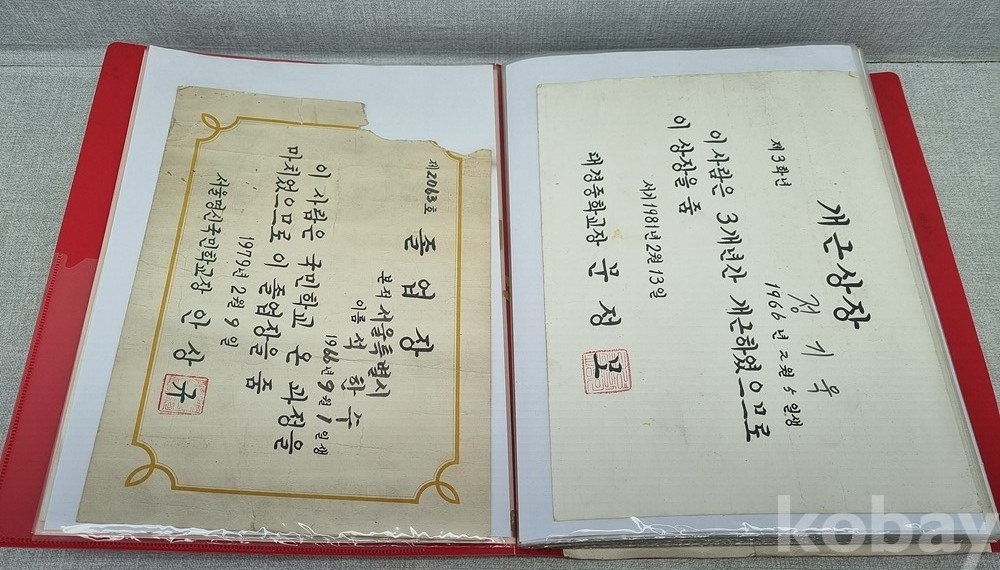 제2063호
졸업장
본적 서울특별시
이름 석한수
1966년 9월 1일생
이 사람은 국민학교 온 과정을
마치었으므로 이 졸업장을 줌
1979년 2월 9일
서울명신국민학교장 안상규
개근상장
제3학년
정기우
1966년 2월 5일생
이 사람은 3개년간 개근하였으므로
이 상장을 줌
서기1981년 2월 13일
중학교장 문정모
kobay